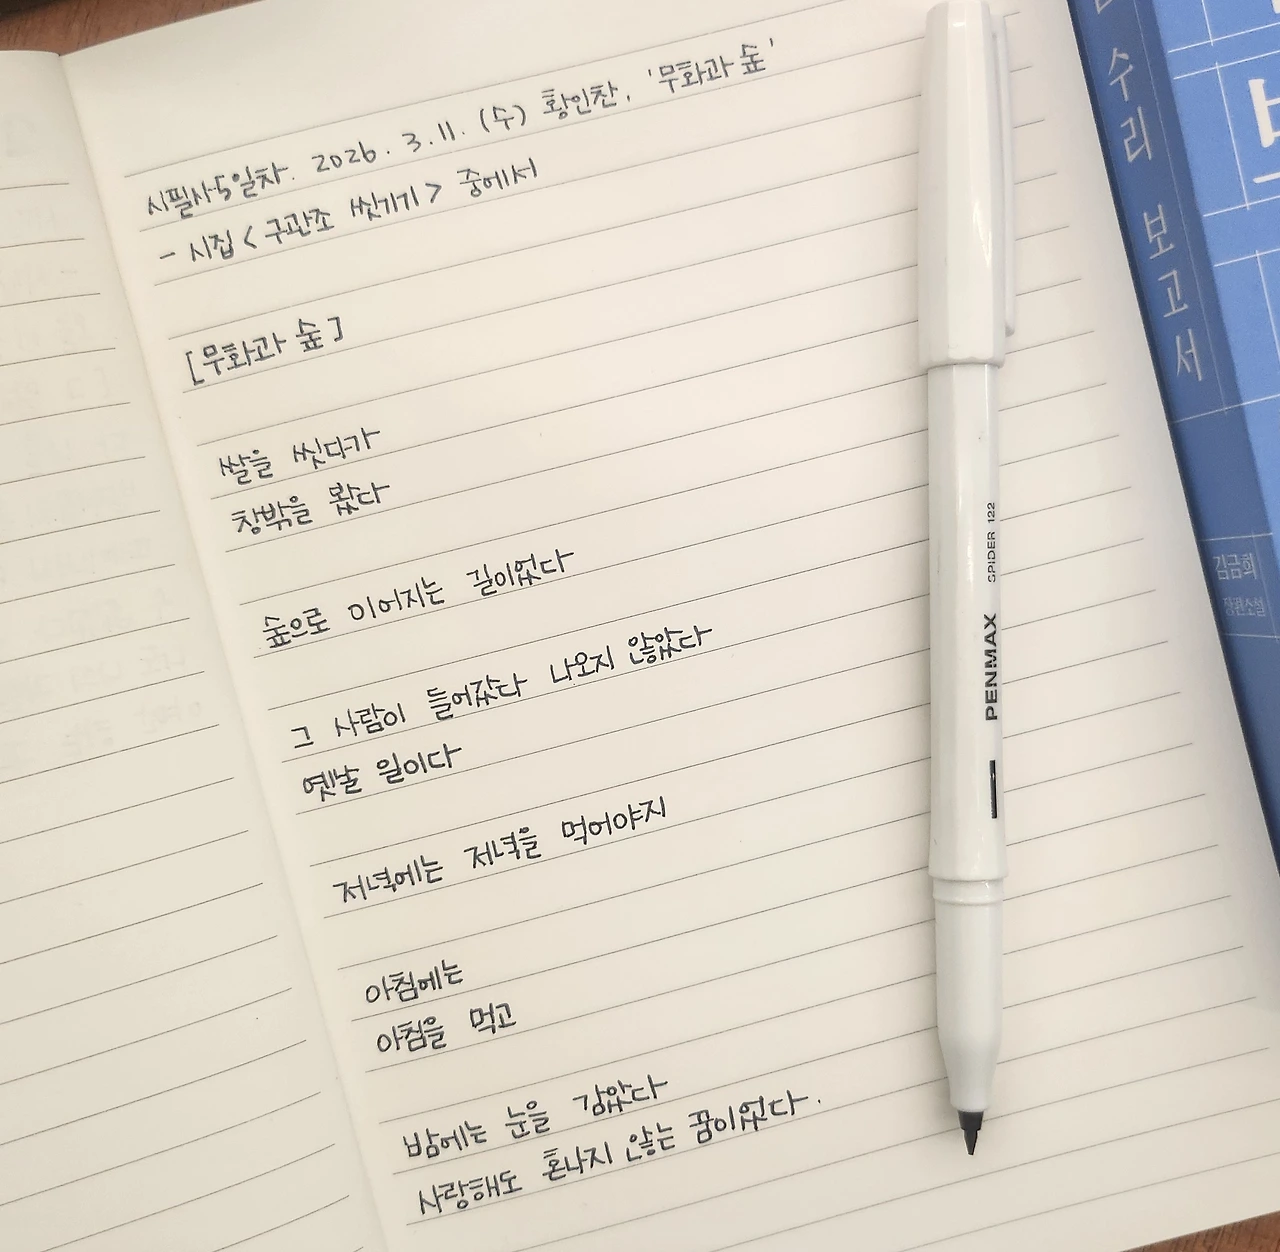 시필사5일차. 2026. 3. 11. (수) 황인찬, '무화과 숲'
- 시집 < 구관조 씻기기 > 중에서
[무화과 숲]
쌀을 씻다가
창밖을 봤다
숲으로 이어지는 길이었다
그 사람이 들어갔다 나오지 않았다
옛날 일이다
저녁에는 저녁을 먹어야지
아침에는
아침을 먹고
밤에는 눈을 감았다
사랑해도 혼나지 않는 꿈이었다.
PENMAX SPIDER 122
수리 보고서
김금희
장편소설